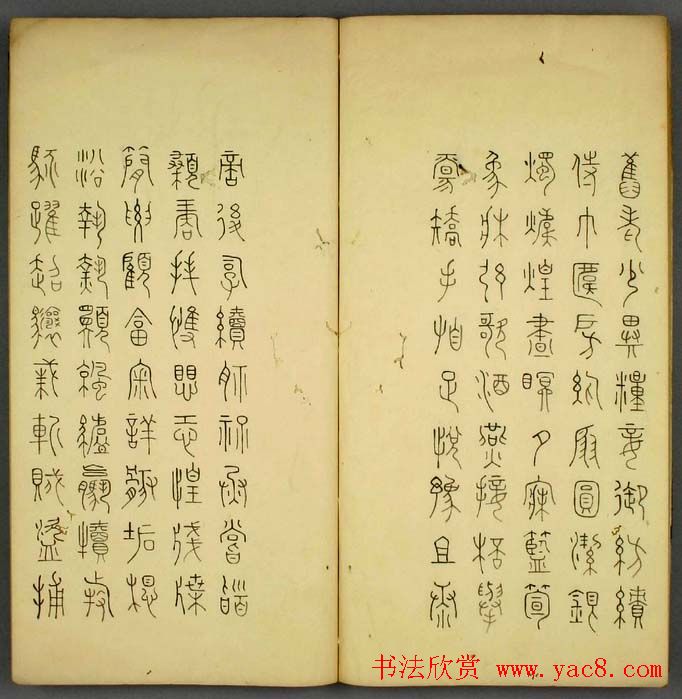 舊老少異糧妾御紡績
侍巾帷房紈扇圓潔銀
燭煒煌晝眠夕寐藍筍
象床弦歌酒讌接杯舉
觴矯手頓足悅豫且康
嫡後嗣續祭祀蒸嘗稽
顙再拜悚懼恐惶牋牒
簡要顧答審詳骸垢想
浴執熱願涼驢騾犢特
駭躍超驤誅斬賊盜捕
书法欣赏 www.yac8.com